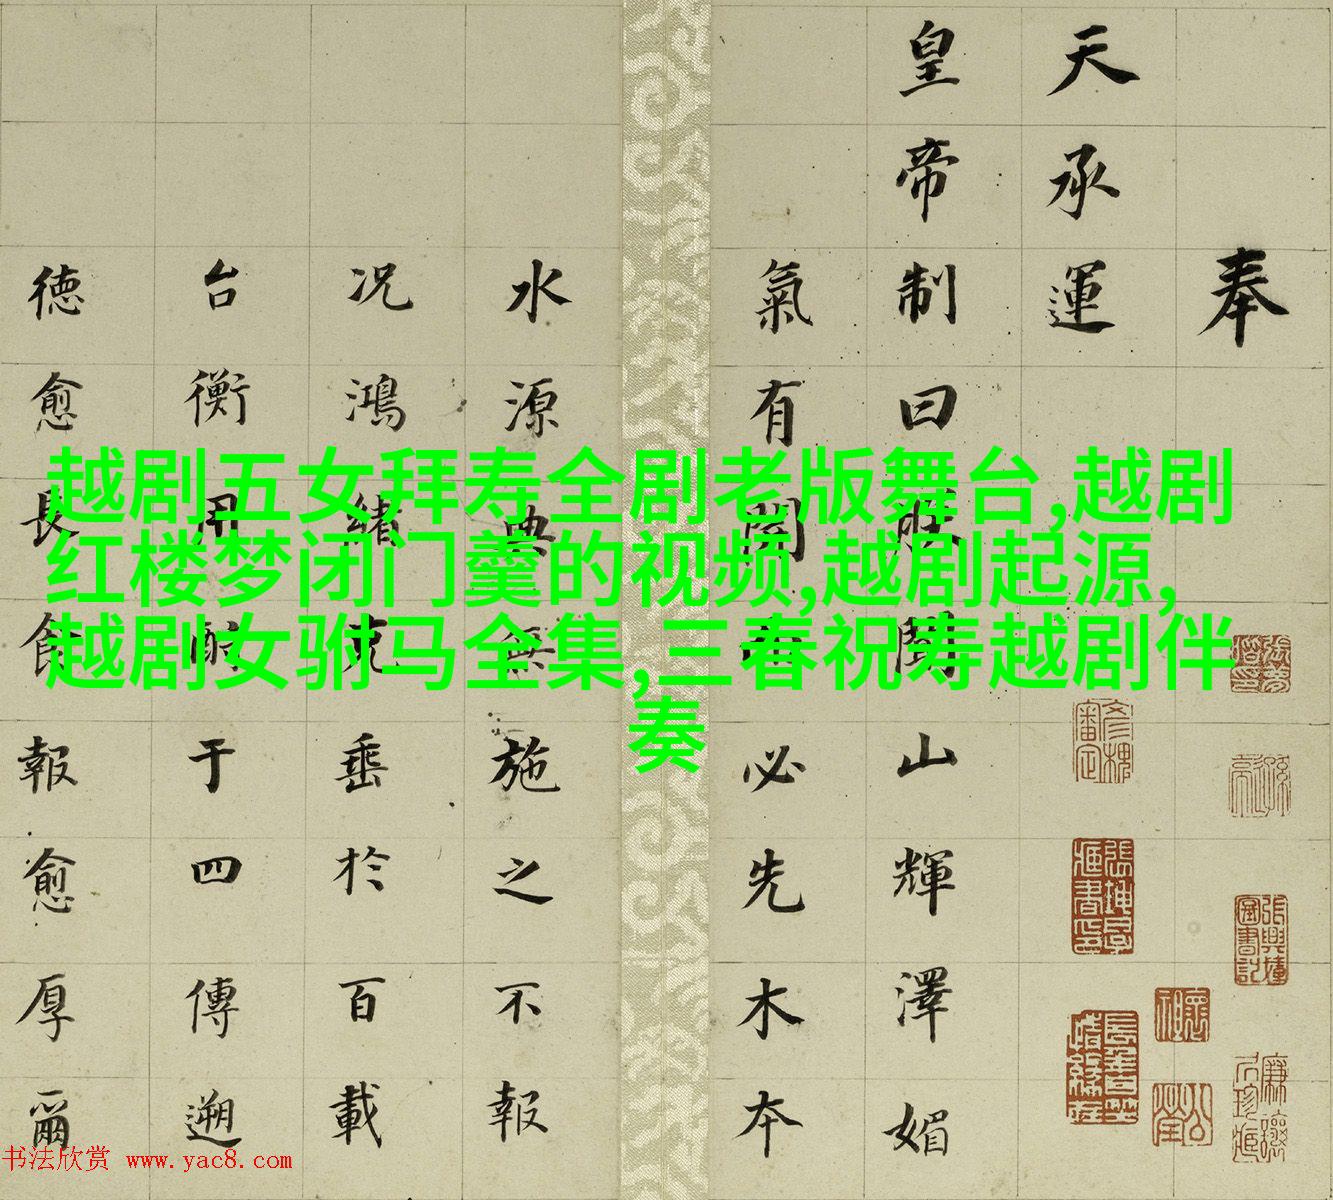 越剧五女拜寿全剧老版舞台,越剧
红楼梦闭门羹的视频,越剧起源,
越剧女驸马全集,三春祝寿越剧伴
奏
奉
天承運
皇帝制曰 山輝澤媚
氣有開 必先木本
水源典無施之不報
况鴻緒克垂於百載
台衡用酬于四傳遡
德愈長 報愈厚爾
书法欣赏 www.yac8.com